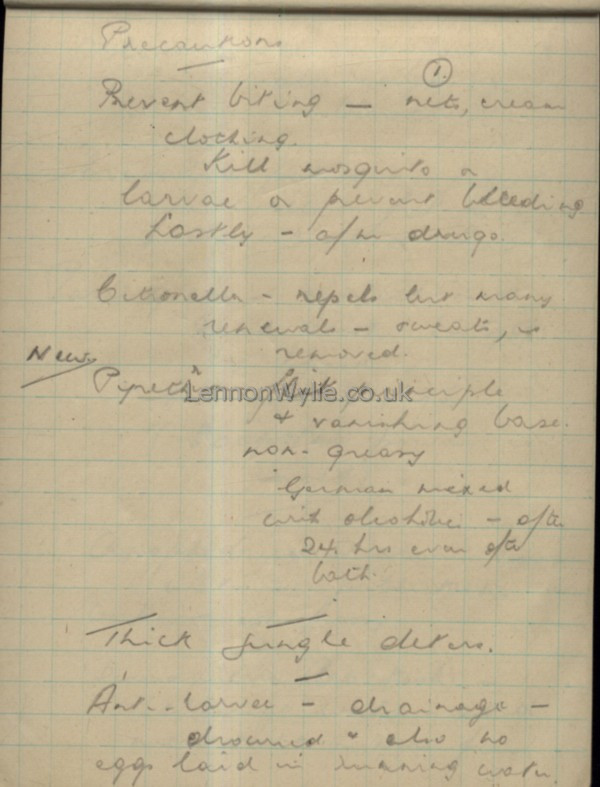 Precautions
1.
Prevent biting – nets, cream
clothing.
Kill mosquito or
larvae or prevent breeding
Lastly – a/m drugs.
Citronella – repels but many
renewals – sweats, is
removed.
New
principle
LennonWylie.co.uk
& vanishing base.
non-greasy
German mixed
with – after
24 hrs even after
bath.
Thick jungle deters.
Anti-larvae – drainage –
drowned " also no
eggs laid in running water.